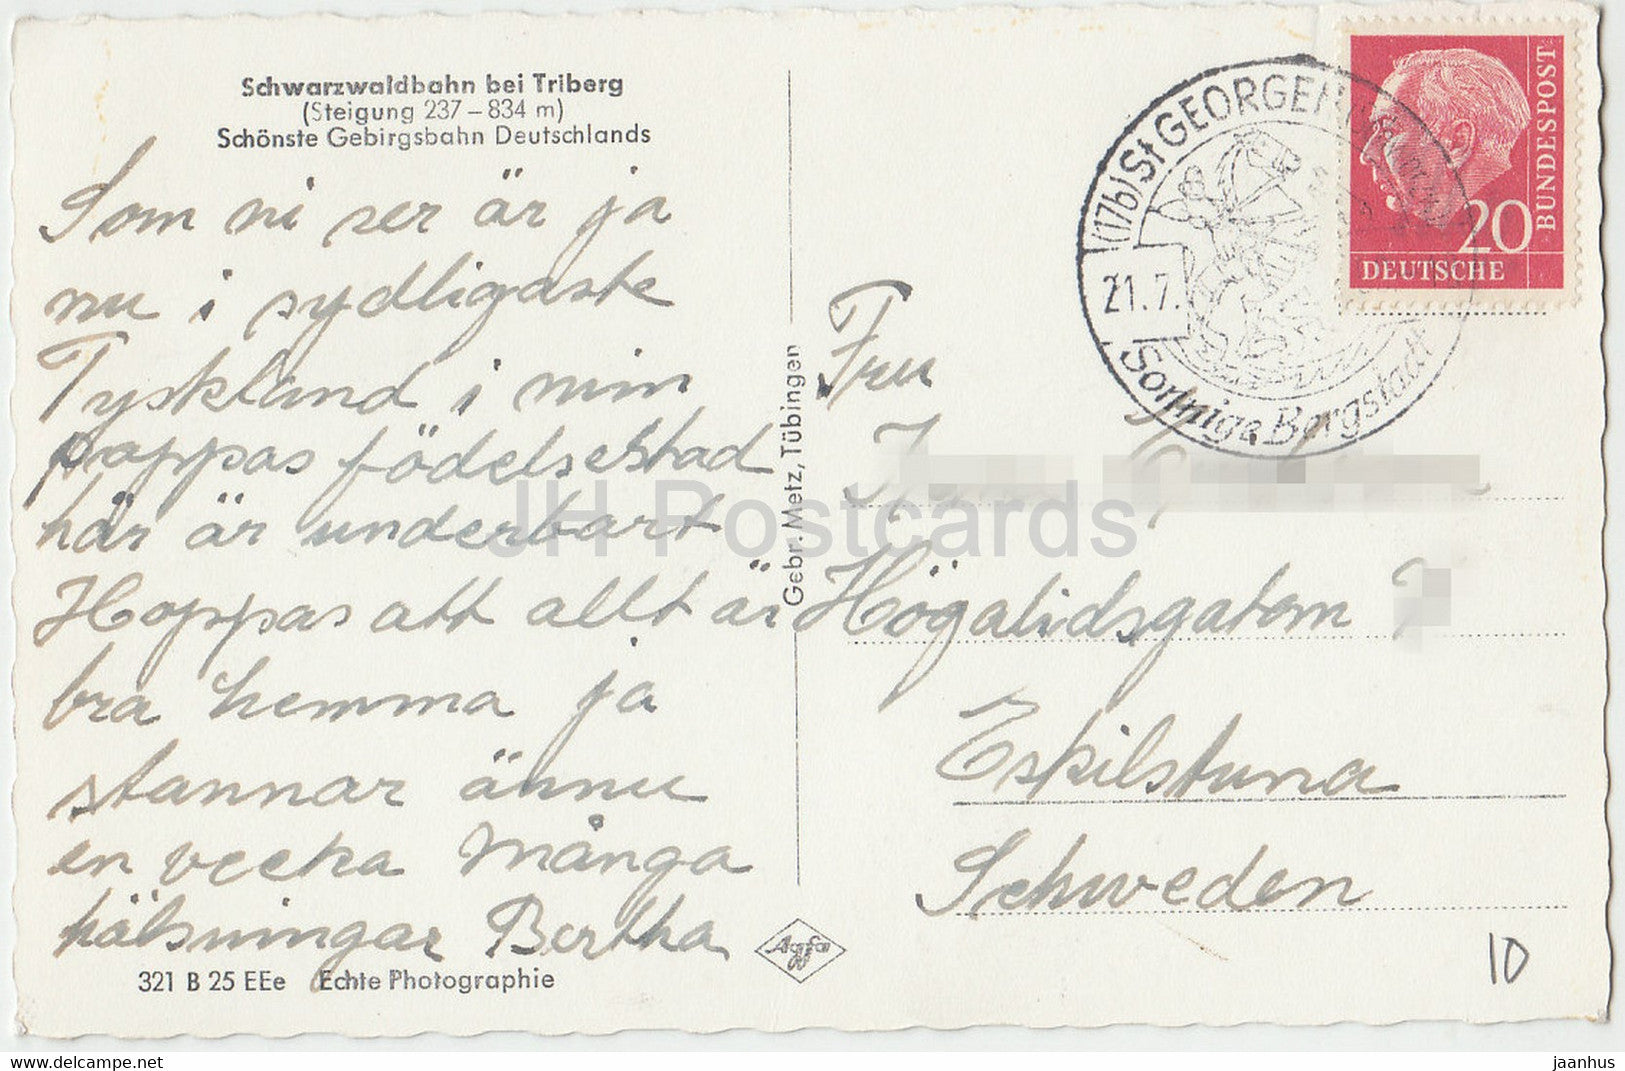 Schwarzwaldbahn bei Triberg
(Steigung 237 – 834 m)
Schönste Gebirgsbahn Deutschlands
Som ni ser är ja
nu i sydligaste
Tyskland i min
pappas födelsestad
här är underbart
Hoppas att allt är
bra hemma ja
stannar ännu
en vecka många
hälsningar Bertha
321 B 25 EEe Echte Photographie
Gebr. Metz, Tübingen
Agfa
(17b) St GEORGEN
21.7.
Sonnige Bergstadt
BUNDESPOST
20
DEUTSCHE
Fru
Högalidsgatan
Eskilstuna
Schweden
10
JH Postcards
www.delcampe.net
jaanhus